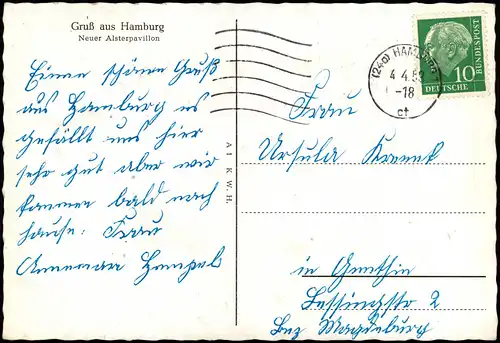 Gruß aus Hamburg
Neuer Alsterpavillon
Einen schönen Gruß
aus Hamburg es
gefällt uns hier
sehr gut aber wir
kommen bald nach
hause: Frau
Annemarr Hempel
A 1 K. W. H.
(24a) HAMBURG
4.4.59
-18
ct
10
DEUTSCHE
BUNDESPOST
Frau
Ursula
in Genthin
Lessingstr 2
Bez Magdeburg